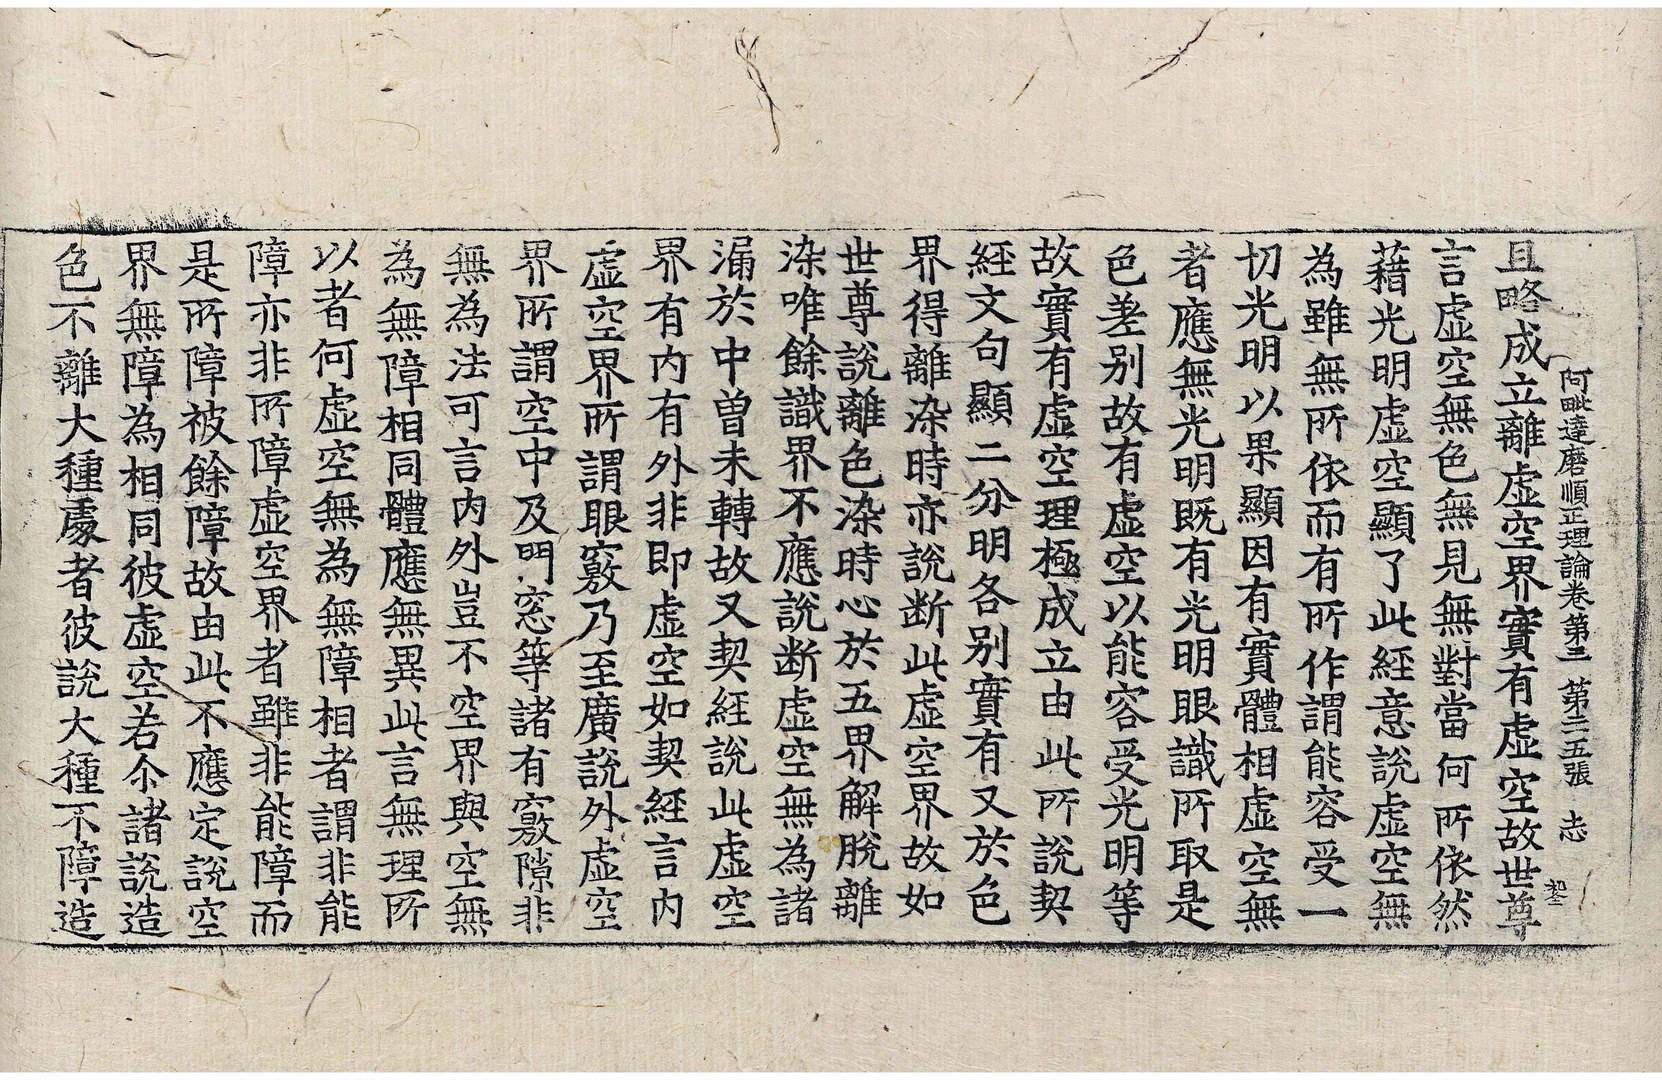 阿毗達磨順正理論卷第三 第二五張 志
且略成立離虛空界實有虛空故世尊
言虛空無色無見無對當何所依然
藉光明虛空顯了此經意說虛空無
為雖無所依而有所作謂能容受一
切光明以果顯因有實體相虛空無
者應無光明既有光明眼識所取是
色差别故有虛空以能容受光明等
故實有虛空理極成立由此所說契
經文句顯二分明各别實有又於色
界得離染時亦說断此虛空界故如
世尊說離色染時心於五界解脫離
染唯餘識界不應說断虛空無為諸
漏於中曾未轉故又契經說此虛空
界有内有外非即虛空如契經言内
虛空界所謂眼竅乃至廣說外虛空
界所謂空中及門窓等諸有竅隙非
無為法可言内外豈不空界與空無
為無障相同體應無異此言無理所
以者何虛空無為無障相者謂非能
障亦非所障虛空界者雖非能障而
是所障被餘障故由此不應定說空
界無障為相同彼虛空若尒諸說造
色不離大種處者彼說大種不障造